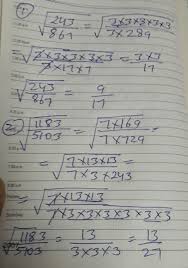 ① √(243/867) = √(3×3×3×3×3/3×289)
√(3×3×3×3×3/3×17×17) = 3×3/17
√(243/867) = 9/17
② √(1183/5103) = √(7×169/7×729)
= √(7×13×13/7×3×243)
= √(7×13×13/7×3×3×3×3×3×3)
√(1183/5103) = 13/3×3×3 = 13/27